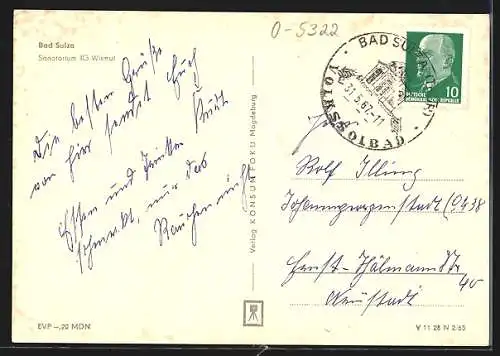 O-5322
Bad Sulza
Sanatorium KG Wismut
Die besten Grüße
von hier sendet Euch
Essen und Trinken
schmeckt, nur das
Rauchen nicht
Verlag KONSUM FOKO Magdeburg
BAD SULZA
31.5.67-11
VOLKSSOLBAD
DEUTSCHE
DEMOKRATISCHE REPUBLIK
10
Rolf Illing
Johanngeorgenstadt
9438
Ernst-Thälmann Str
40
Neustadt
EVP -,20 MDN
V 11 28 N 2/65